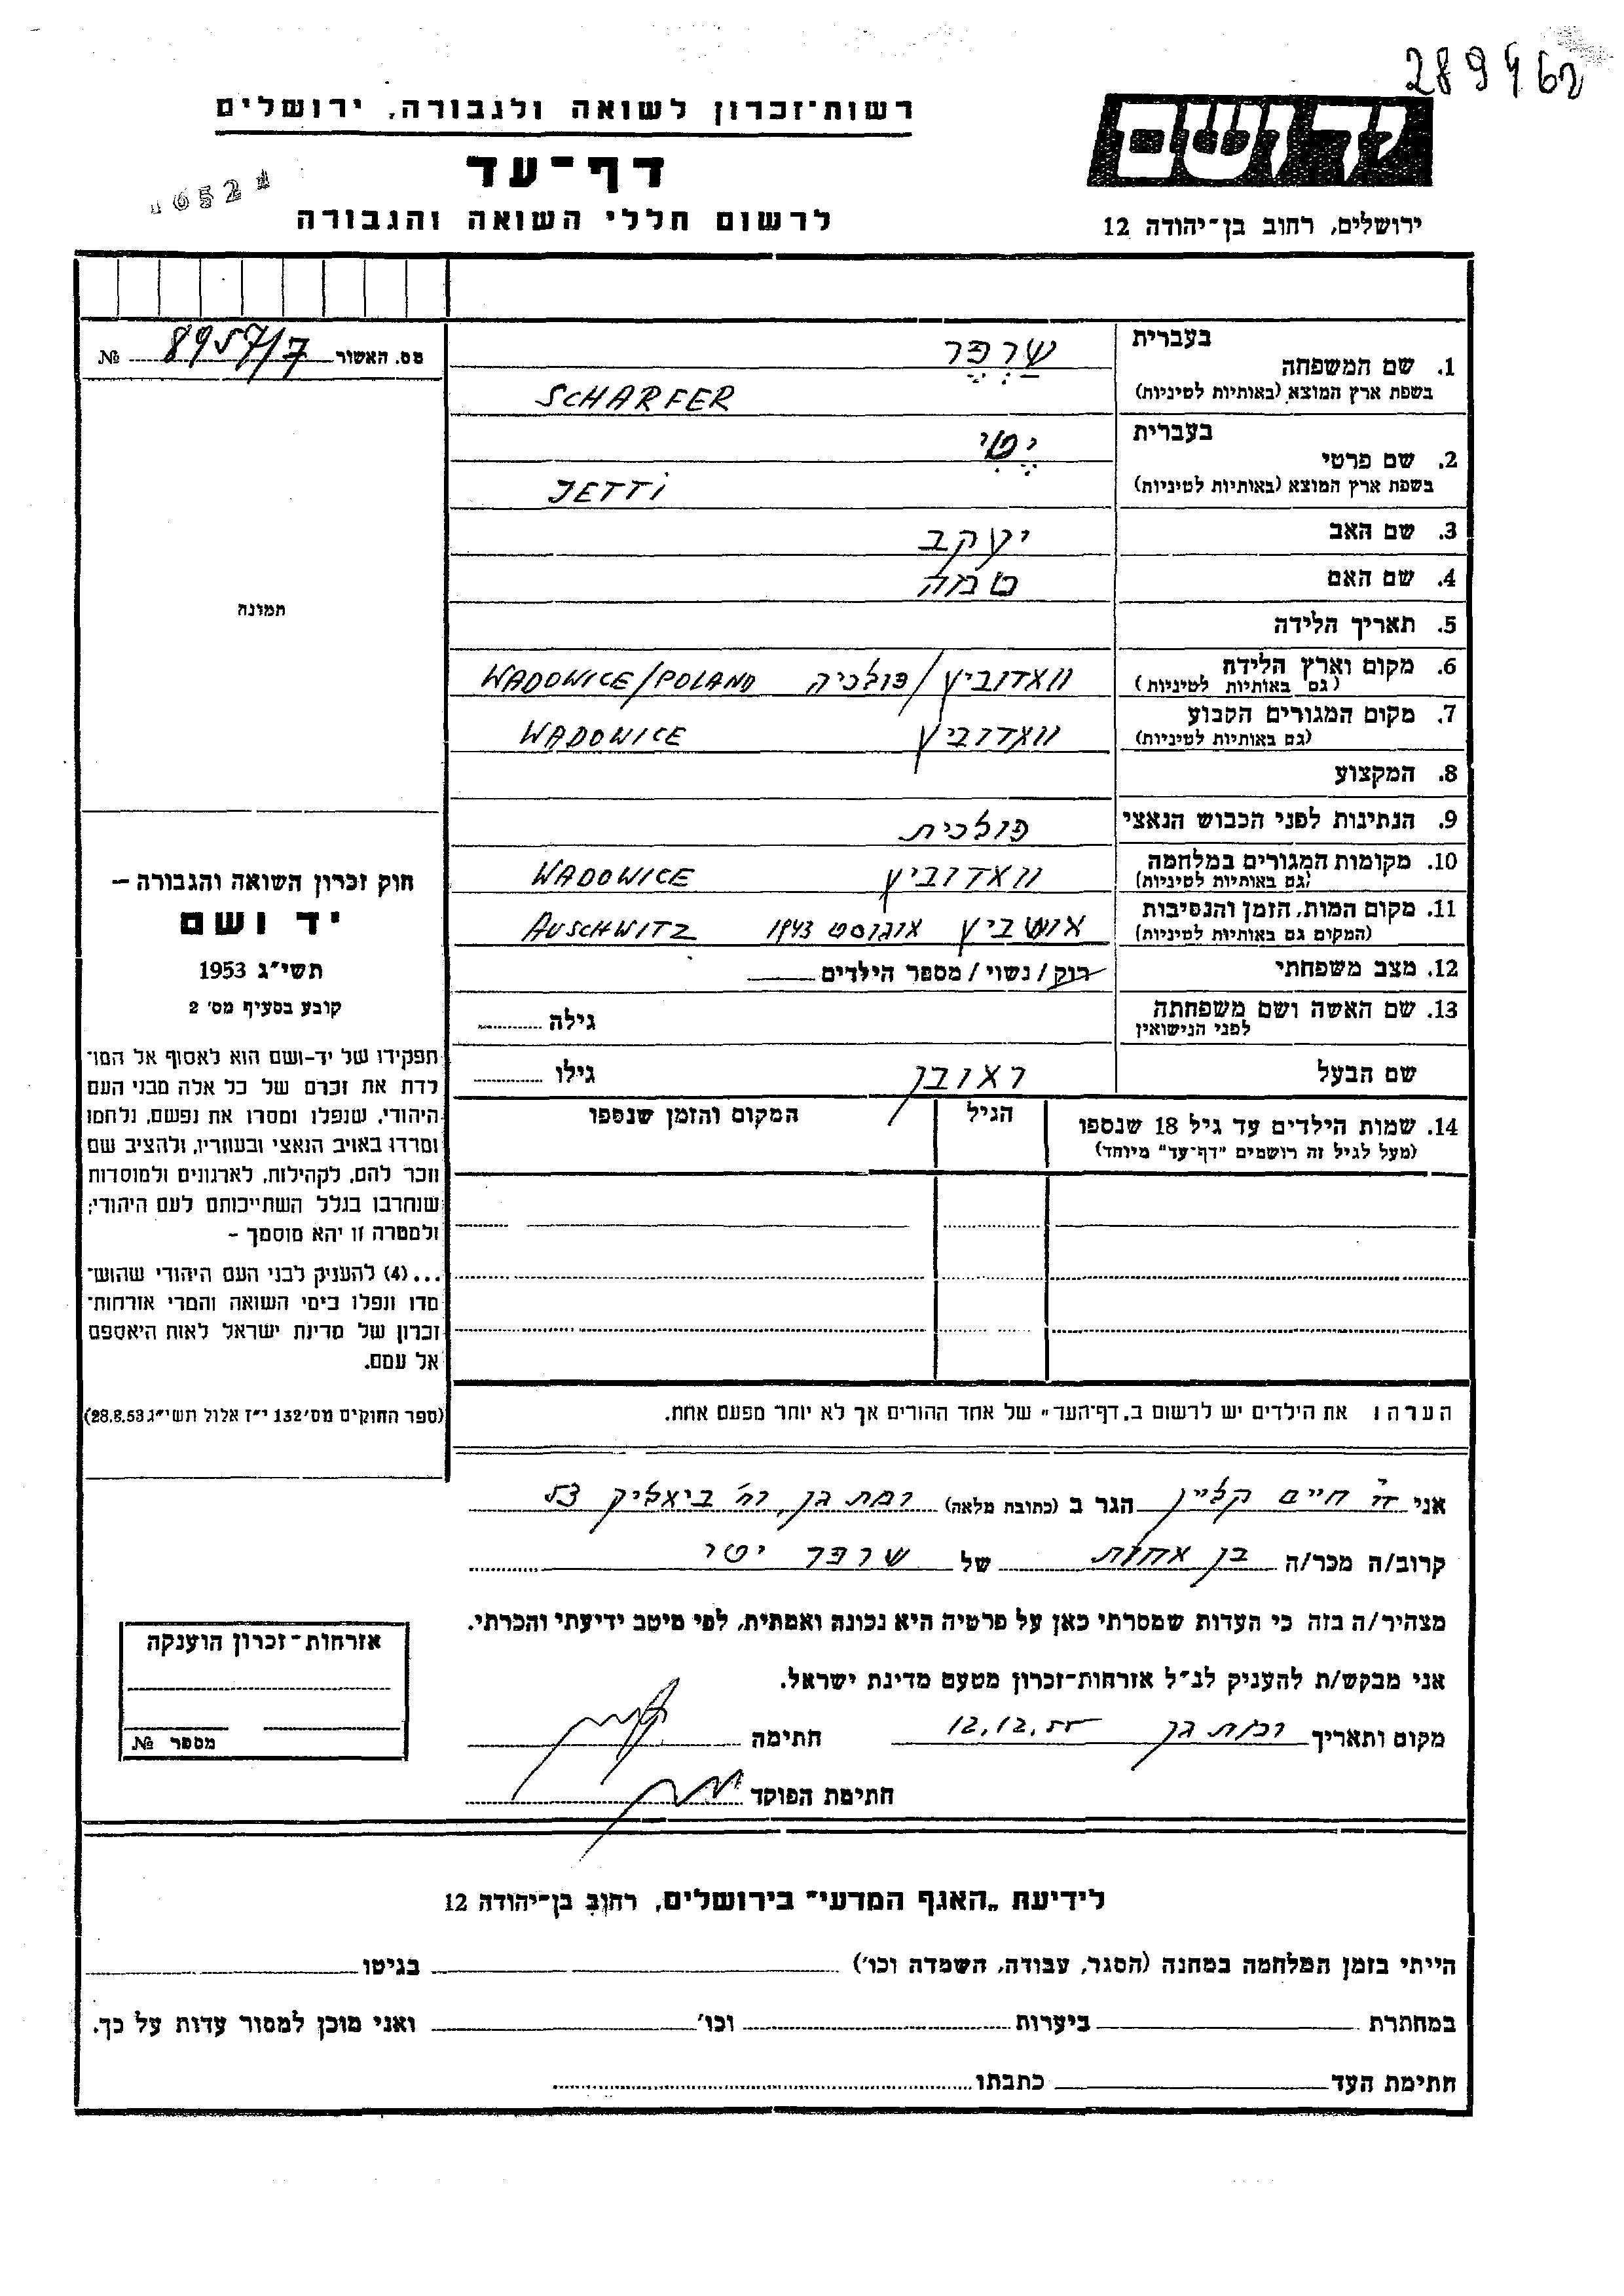 289462
רשות־זכרון לשואה ולגבורה, ירושלים
יד ושם
דף־עד
לרשום חללי השואה והגבורה
ירושלים, רחוב בן־יהודה 12
מס. האשור 8957/7 №
תמונה
1. שם המשפחה
בעברית שרפר
בשפת ארץ המוצא (באותיות לטיניות) SCHARFER
2. שם פרטי
בעברית יטי
בשפת ארץ המוצא (באותיות לטיניות) JETTI
3. שם האב יעקב
4. שם האם
5. תאריך הלידה
6. מקום וארץ הלידה וואדוביץ/פולניה WADOWICE/POLAND
(גם באותיות לטיניות)
7. מקום המגורים הקבוע וואדוביץ WADOWICE
(גם באותיות לטיניות)
8. המקצוע
9. הנתינות לפני הכבוש הנאצי פולנית
10. מקומות המגורים במלחמה וואדוביץ WADOWICE
(גם באותיות לטיניות)
11. מקום המות, הזמן והנסיבות אושביץ אוגוסט 1943 AUSCHWITZ
(המקום גם באותיות לטיניות)
12. מצב משפחתי רוק/נשוי/מספר הילדים
13. שם האשה ושם משפחתה גילה
לפני הנישואין
שם הבעל ראובן גילו
14. שמות הילדים עד גיל 18 שנספו הגיל המקום והזמן שנספו
(מעל לגיל זה רושמים "דף־עד" מיוחד)
חוק זכרון השואה והגבורה –
יד ושם
תשי״ג 1953
קובע בסעיף מס׳ 2
תפקידו של יד-ושם הוא לאסוף אל המו־
לדת את זכרם של כל אלה מבני העם
היהודי, שנפלו ומסרו את נפשם, נלחמו
ומרדו באויב הנאצי ובעוזריו, ולהציב שם
וזכר להם, לקהילות, לארגונים ולמוסדות
שנחרבו בגלל השתייכותם לעם היהודי;
ולמטרה זו יהא מוסמך –
...(4) להעניק לבני העם היהודי שהוש־
מדו ונפלו בימי השואה והמרי אזרחות־
זכרון של מדינת ישראל לאות היאספם
אל עמם.
(ספר החוקים מס׳ 132 י״ז אלול תשי״ג 28.8.53)
הערה: את הילדים יש לרשום ב„דף־העד" של אחד ההורים אך לא יותר מפעם אחת.
אני ד״ר חיים קליין הגר ב (כתובת מלאה) רמת גן, רח׳ ביאליק 53
קרוב/ה מכר/ה בן אחות של שרפר יטי
מצהיר/ה בזה כי העדות שמסרתי כאן על פרטיה היא נכונה ואמתית, לפי מיטב ידיעתי והכרתי.
אני מבקש/ת להעניק לנ״ל אזרחות־זכרון מטעם מדינת ישראל.
מקום ותאריך רמת גן 12.12.55 חתימה
חתימת הפוקד
אזרחות־זכרון הוענקה
מספר №
לידיעת „האגף המדעי" בירושלים, רחוב בן־יהודה 12
הייתי בזמן המלחמה במחנה (הסגר, עבודה, השמדה וכו׳) בגיטו
במחתרת ביערות וכו׳ ואני מוכן למסור עדות על כך.
חתימת העד כתבתו